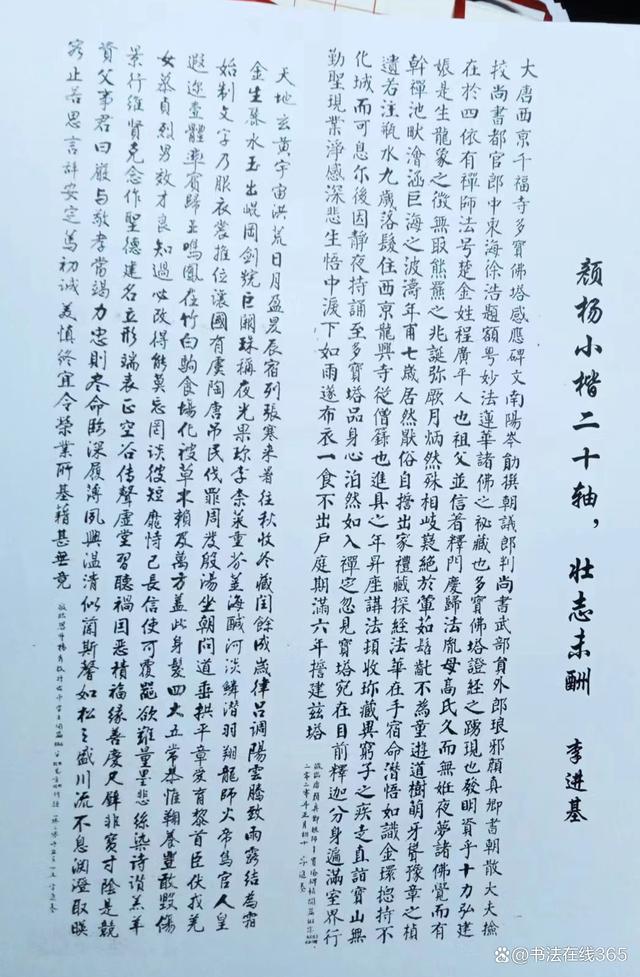 颜杨小楷二十轴，壮志未酬 李进基
大唐西京千福寺多寶佛塔感應碑文南陽岑勛撰朝議郎判尚書武部員外郎琅邪顏真卿書朝散大夫撿
挍尚書都官郎中東海徐浩題額粤妙法蓮華諸佛之秘藏也多寶佛塔證經之踴現也發明資乎十力弘建
在於四依有禪師法号楚金姓程廣平人也祖父並信著釋門慶歸法胤母高氏久而無妊夜夢諸佛覺而有
娠是生龍象之徵無取熊羆之兆誕弥厥月炳然殊相岐嶷絕於葷茹髫齓不為童遊道樹萌牙聳豫章之楨
幹禪池畎澮涵巨海之波濤年甫七歲居然猒俗自誓出家禮藏探經法華在手宿命潛悟如識金環揔持不
遺若注瓶水九歲落髮住西京龍興寺從僧籙也進具之年昇座講法頓收珎藏異窮子之疾走直詣寶山無
化城而可息尔後因靜夜持誦至多寶塔品身心泊然如入禪定忽見寶塔宛在目前釋迦分身遍滿空界行
勤聖現業淨感深悲生悟中淚下如雨遂布衣一食不出戶庭期滿六年誓建茲塔
敬臨唐顏真卿
二〇二〇年五月
天地玄黄宇宙洪荒日月盈昃辰宿列張寒来暑往秋收冬藏閏餘成歲律吕調陽雲騰致雨露結為霜
金生麗水玉出崐岡劍號巨闕珠稱夜光果珍李柰菜重芥薑海鹹河淡鱗潛羽翔龍師火帝鳥官人皇
始制文字乃服衣裳推位讓國有虞陶唐吊民伐罪周發殷湯坐朝問道垂拱平章愛育黎首臣伏戎羌
遐迩壹體率賓歸王鳴鳳在竹白駒食場化被草木賴及萬方蓋此身髮四大五常恭惟鞠養豈敢毀傷
女慕貞烈男效才良知過必改得能莫忘罔談彼短靡恃己長信使可覆器欲難量墨悲絲染詩讚羔羊
景行維賢克念作聖德建名立形端表正空谷傳聲虚堂習聽禍因惡積福緣善慶尺璧非寶寸陰是競
資父事君曰嚴与敬孝當竭力忠則盡命臨深履薄夙興温凊似蘭斯馨如松之盛川流不息淵澄取暎
容止若思言辞安定篤初誠美慎終宜令榮業所基籍甚無竟
@书法在线365